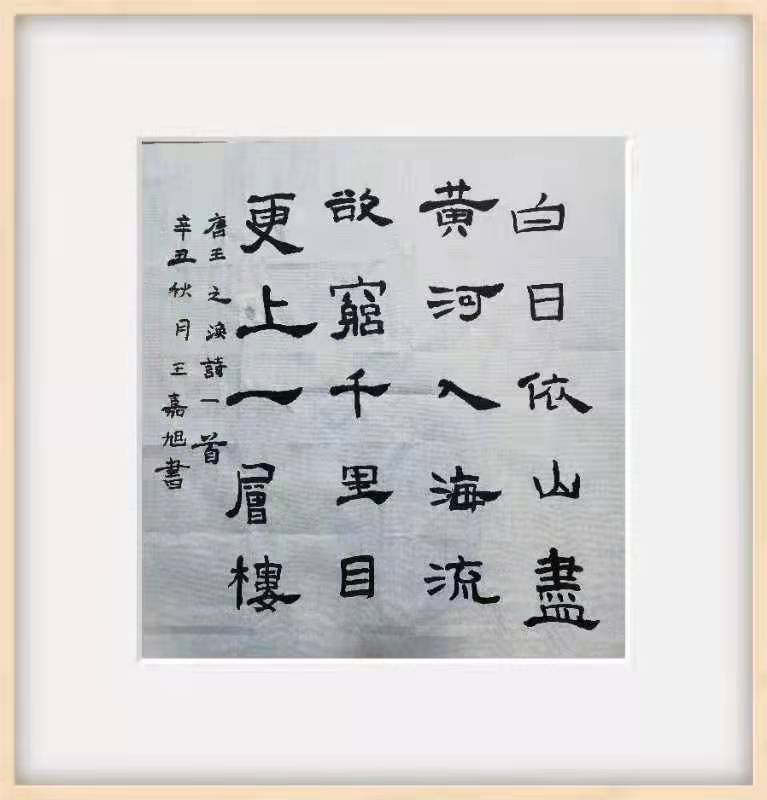 白日依山盡
黄河入海流
欲窮千里目
更上一層樓
唐王之渙詩一首
辛丑秋月王嘉旭書